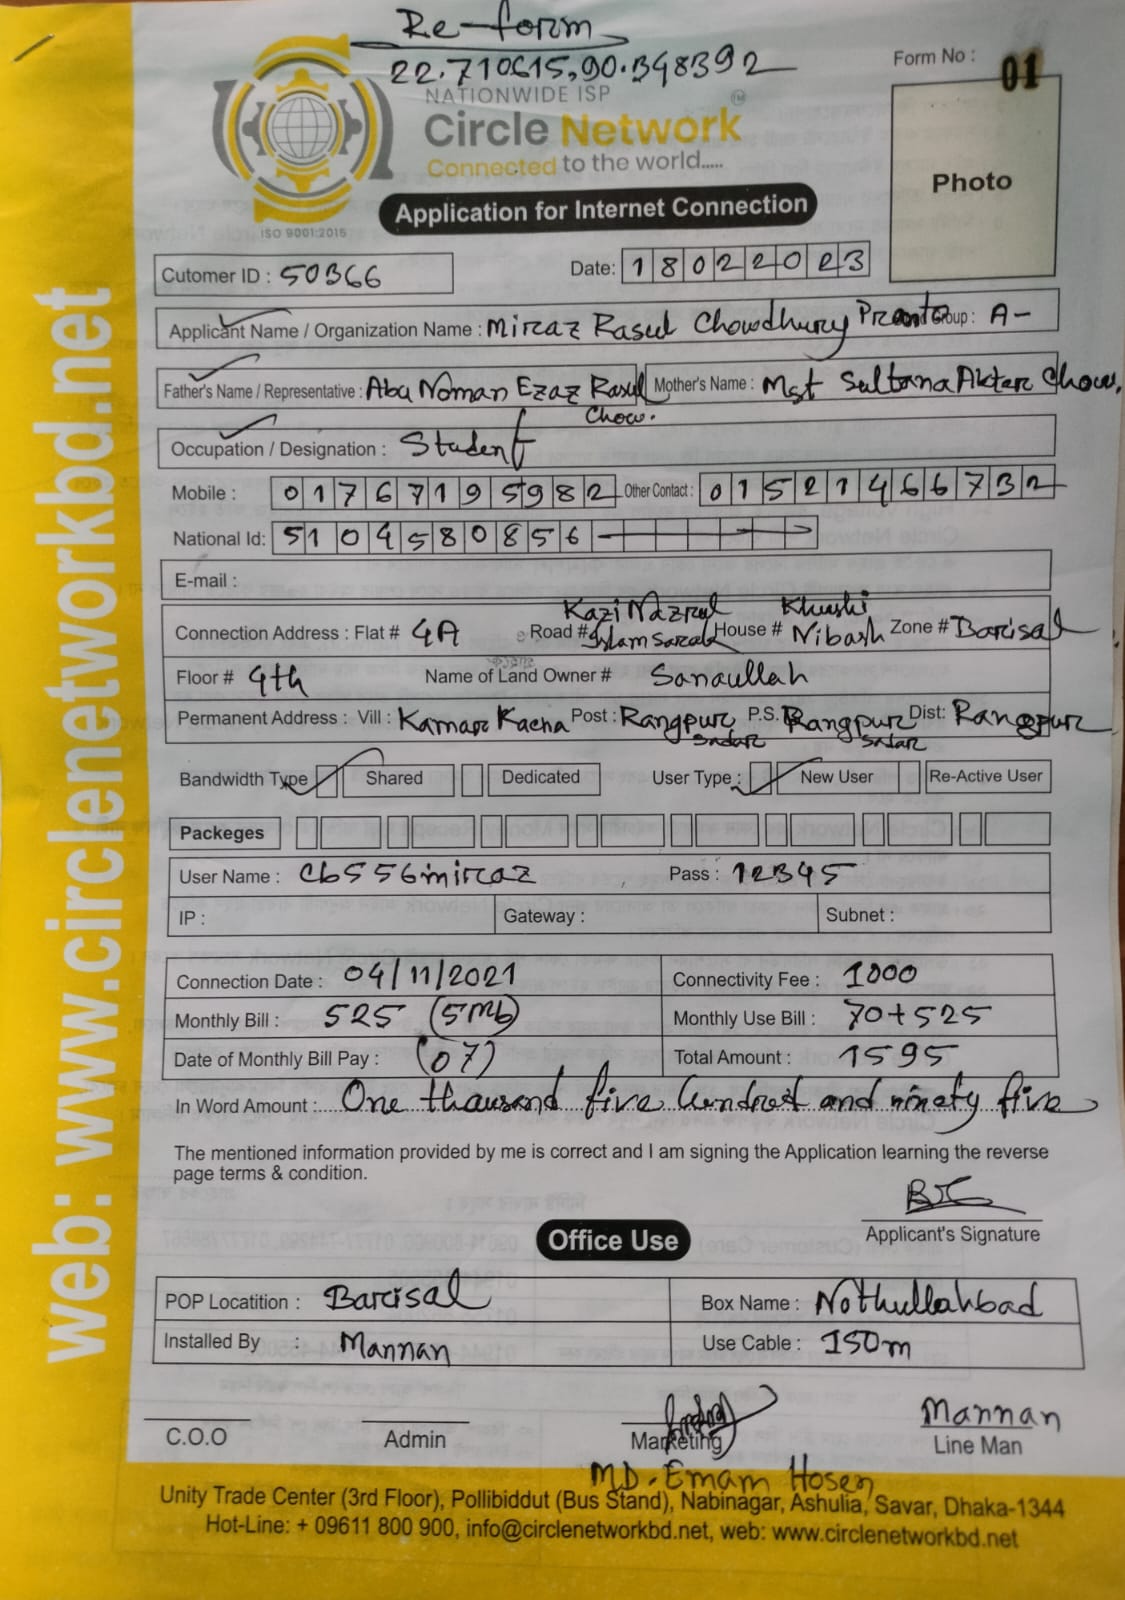 Re-form
22.710615,90.348392
Form No : 01
NATIONWIDE ISP
Circle Network
Connected to the world.....
ISO 9001:2015
Photo
Application for Internet Connection
Cutomer ID : 50366
Date: 18022023
Applicant Name / Organization Name : Miraz Rasul Chowdhury Pranto Group : A-
Father's Name / Representative : Abu Noman Ezaz Rasul Chow. Mother's Name : Mst Sultana Akter Chow.
Occupation / Designation : Student
Mobile : 01767195982 Other Contact : 01521466732
National Id: 5104580856
E-mail :
Connection Address : Flat # 4A Road # Kazi Nazrul Islam Sarak House # Khushi Nibash Zone # Barisal
Floor # 4th Name of Land Owner # Sanaullah
Permanent Address : Vill : Kamar Kacna Post : Rangpur Sadar P.S. Rangpur Sadar Dist: Rangpur
Bandwidth Type Shared Dedicated User Type : New User Re-Active User
Packeges
User Name : cb556miraz Pass : 12345
IP : Gateway : Subnet :
Connection Date : 04/11/2021 Connectivity Fee : 1000
Monthly Bill : 525 (5Mb) Monthly Use Bill : 70+525
Date of Monthly Bill Pay : (07) Total Amount : 1595
In Word Amount : One thausand five hundred and ninety five
The mentioned information provided by me is correct and I am signing the Application learning the reverse
page terms & condition.
Applicant's Signature
Office Use
POP Locatition : Barisal Box Name : Nothullahbad
Installed By : Mannan Use Cable : 150m
Mannan
C.O.O Admin Marketing Line Man
MD. Emam Hosen
Unity Trade Center (3rd Floor), Pollibiddut (Bus Stand), Nabinagar, Ashulia, Savar, Dhaka-1344
Hot-Line: + 09611 800 900, info@circlenetworkbd.net, web: www.circlenetworkbd.net
web: www.circlenetworkbd.net